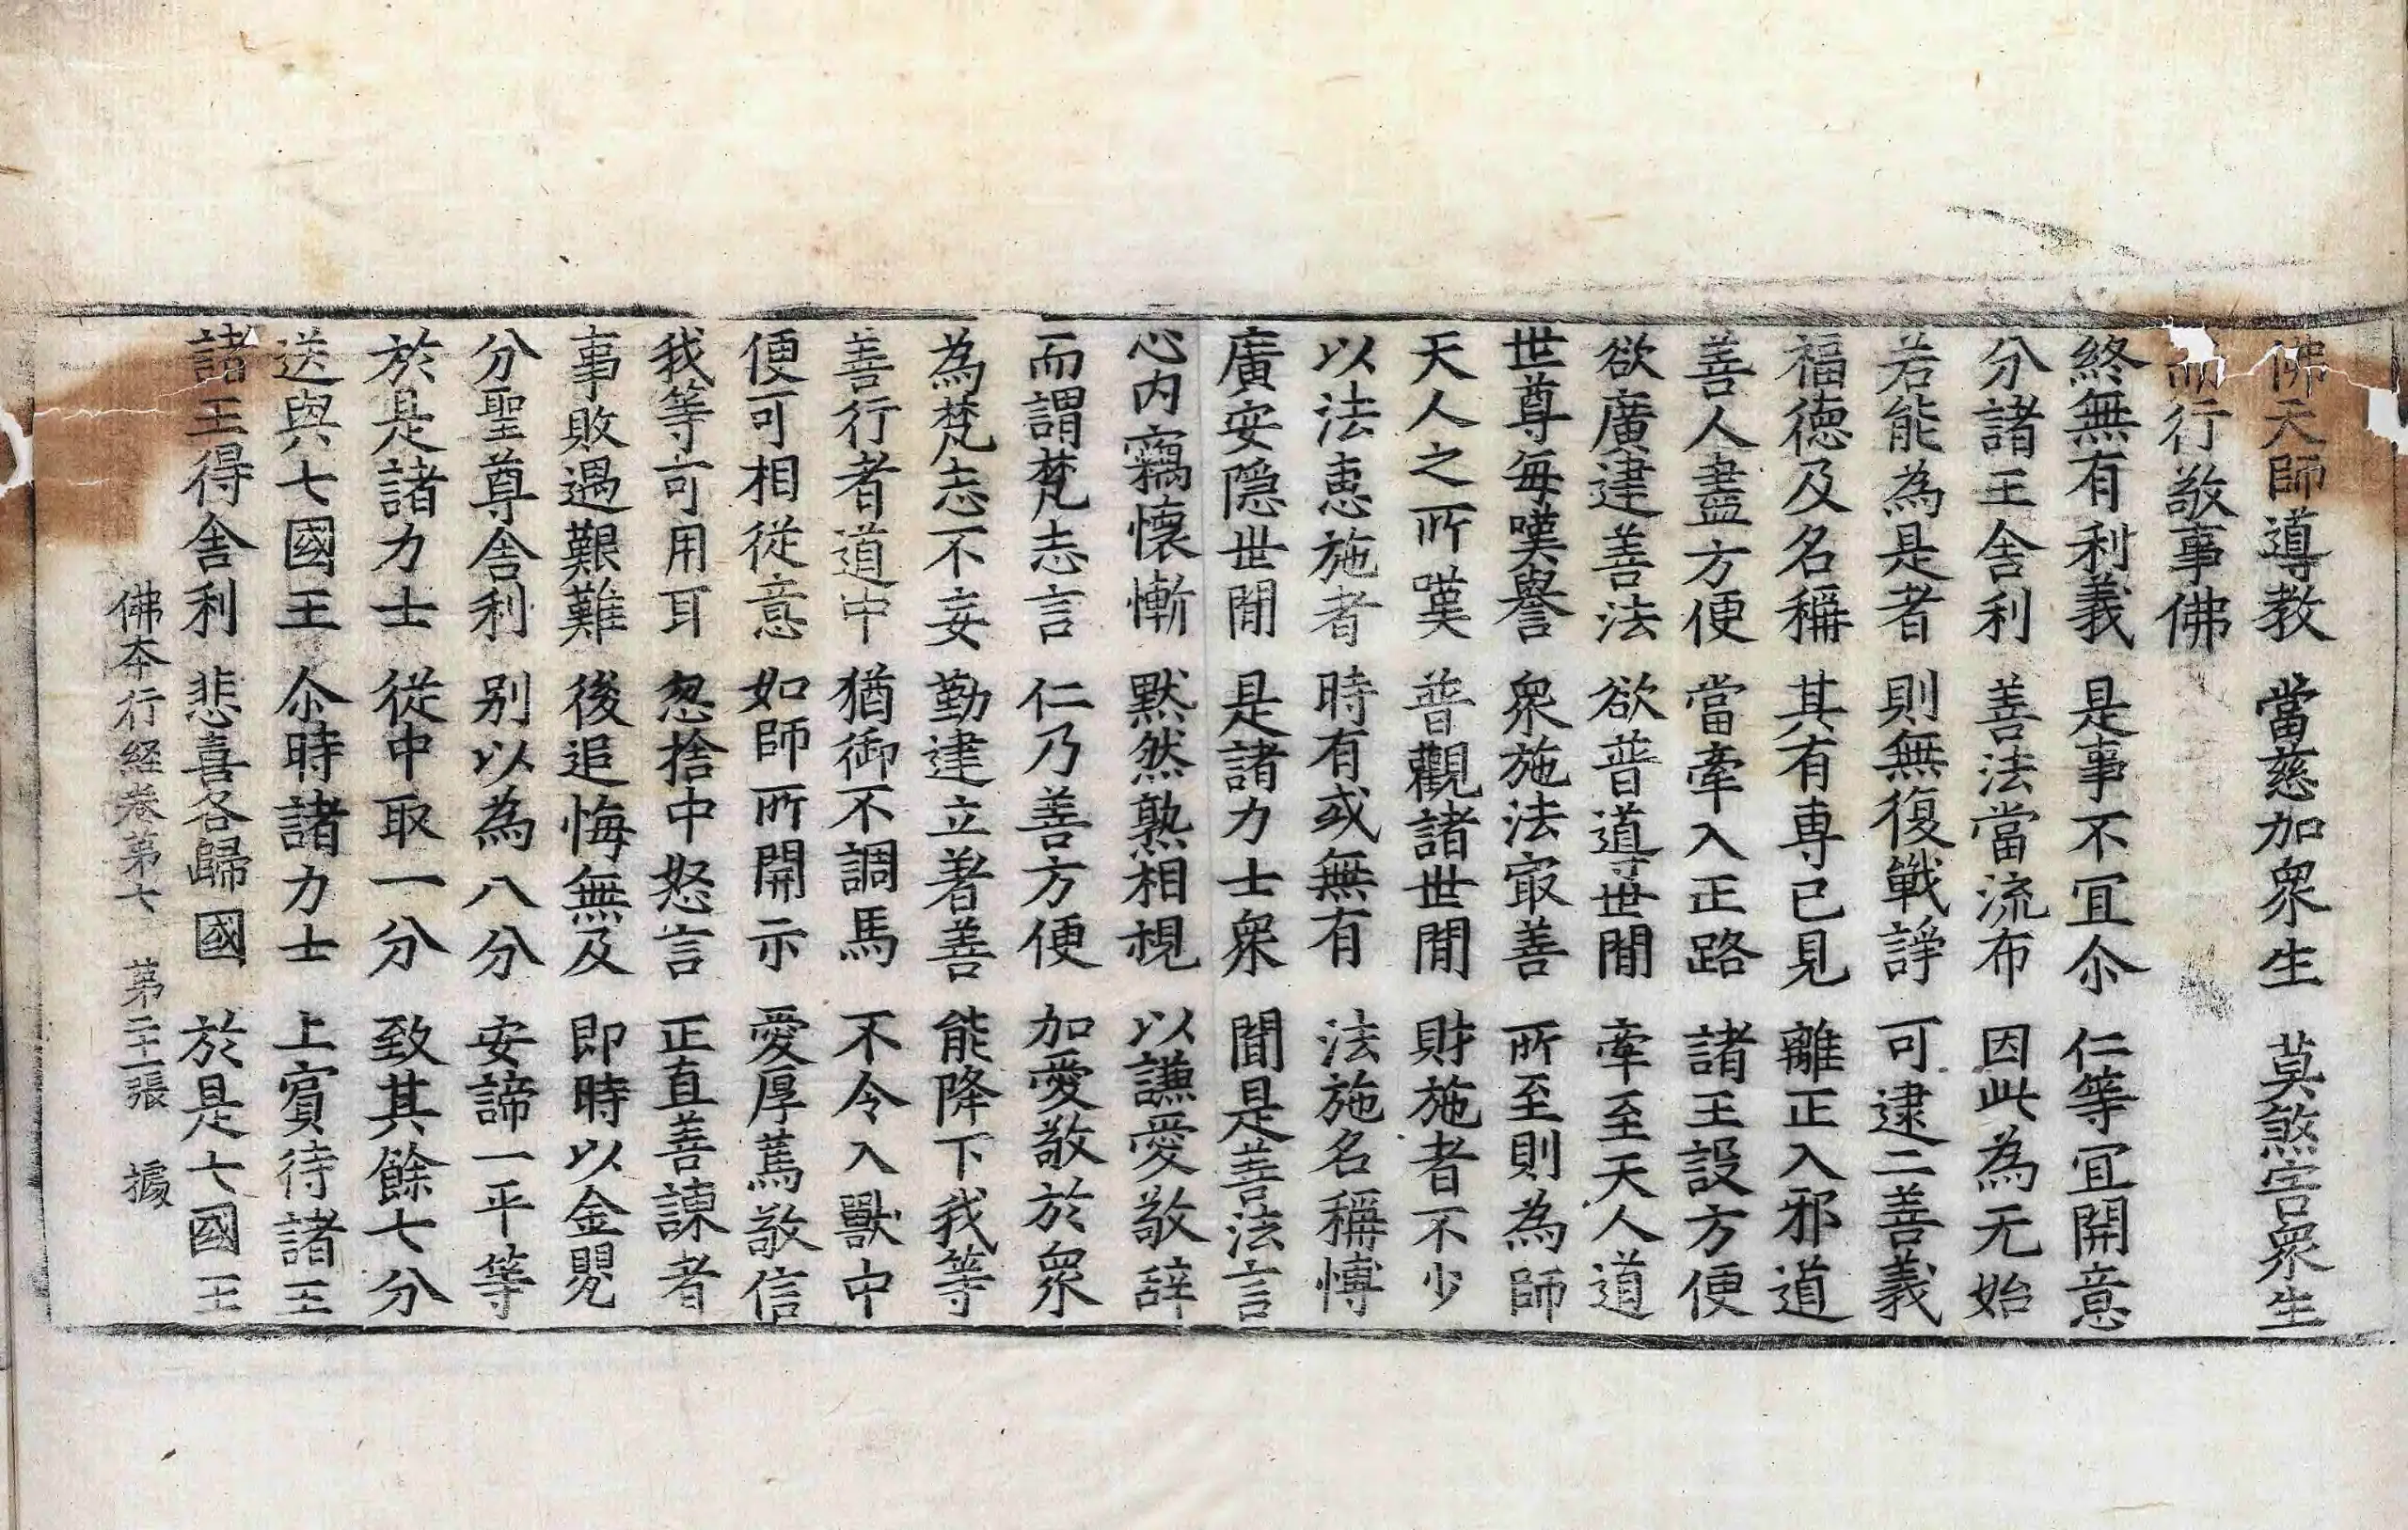 佛天師導教 當慈加衆生 莫煞害衆生
而行敬事佛
終無有利義 是事不冝尒 仁等冝開意
分諸王舎利 善法當流布 因此為无始
若能為是者 則無復戰諍 可逮二善義
福德及名稱 其有專已見 離正入邪道
善人盡方便 當牽入正路 諸王設方便
欲廣建善法 欲普導世間 牽至天人道
世尊每嘆譽 衆施法㝡善 所至則為師
天人之所嘆 普觀諸世間 財施者不少
以法惠施者 時有或無有 法施名稱愽
廣安隱世間 是諸力士衆 聞是善法言
心内竊懷慚 黙然熟相視 以謙愛敬辞
而謂梵志言 仁乃善方便 加愛敬於衆
為梵志不妄 勤建立著善 能降下我等
善行者道中 猶御不調馬 不令入獸中
便可相從意 如師所開示 愛厚萬敬信
我等可用耳 怱捨中怒言 正直善諫者
事敗遇艱難 後追悔無及 即時以金甖
分聖尊舎利 别以為八分 安諦一平等
於是諸力士 從中取一分 致其餘七分
送與七國王 尒時諸力士 上賔待諸王
諸王得舎利 悲喜各歸國 於是七國王
佛本行経卷第七 第二十二張 據